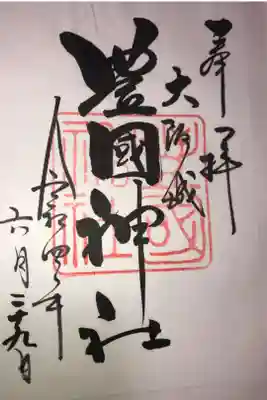 奉拝
大阪城
豊國神社
令和四年
六月二十九日